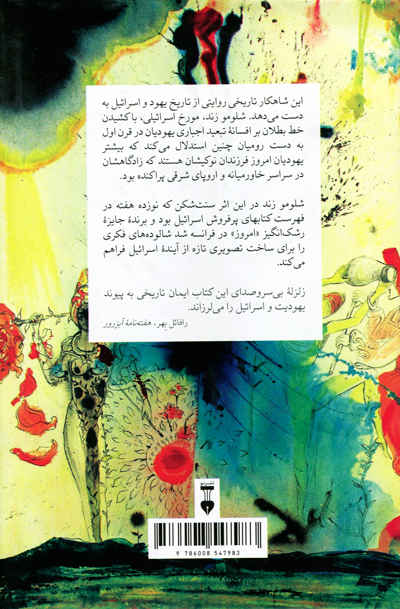 این شاهکار تاریخی روایتی از تاریخ یهود و اسرائیل به
دست می‌دهد. شلومو زند، مورخ اسرائیلی، با کشیدن
خط بطلان بر افسانهٔ تبعید اجباری یهودیان در قرن اول
به دست رومیان چنین استدلال می‌کند که بیشتر
یهودیان امروز فرزندان نوکیشان هستند که زادگاهشان
در سراسر خاورمیانه و اروپای شرقی پراکنده بود.
شلومو زند در این اثر سنت‌شکن که نوزده هفته در
فهرست کتابهای پرفروش اسرائیل بود و برندهٔ جایزهٔ
رشک‌انگیز «امروز» در فرانسه شد شالوده‌های فکری
را برای ساخت تصویری تازه از آیندهٔ اسرائیل فراهم
می‌کند.
زلزلهٔ بی‌سروصدای این کتاب ایمان تاریخی به پیوند
یهودیت و اسرائیل را می‌لرزاند.
رافائل بهر، هفته‌نامهٔ آبزرور
9 786008 547983